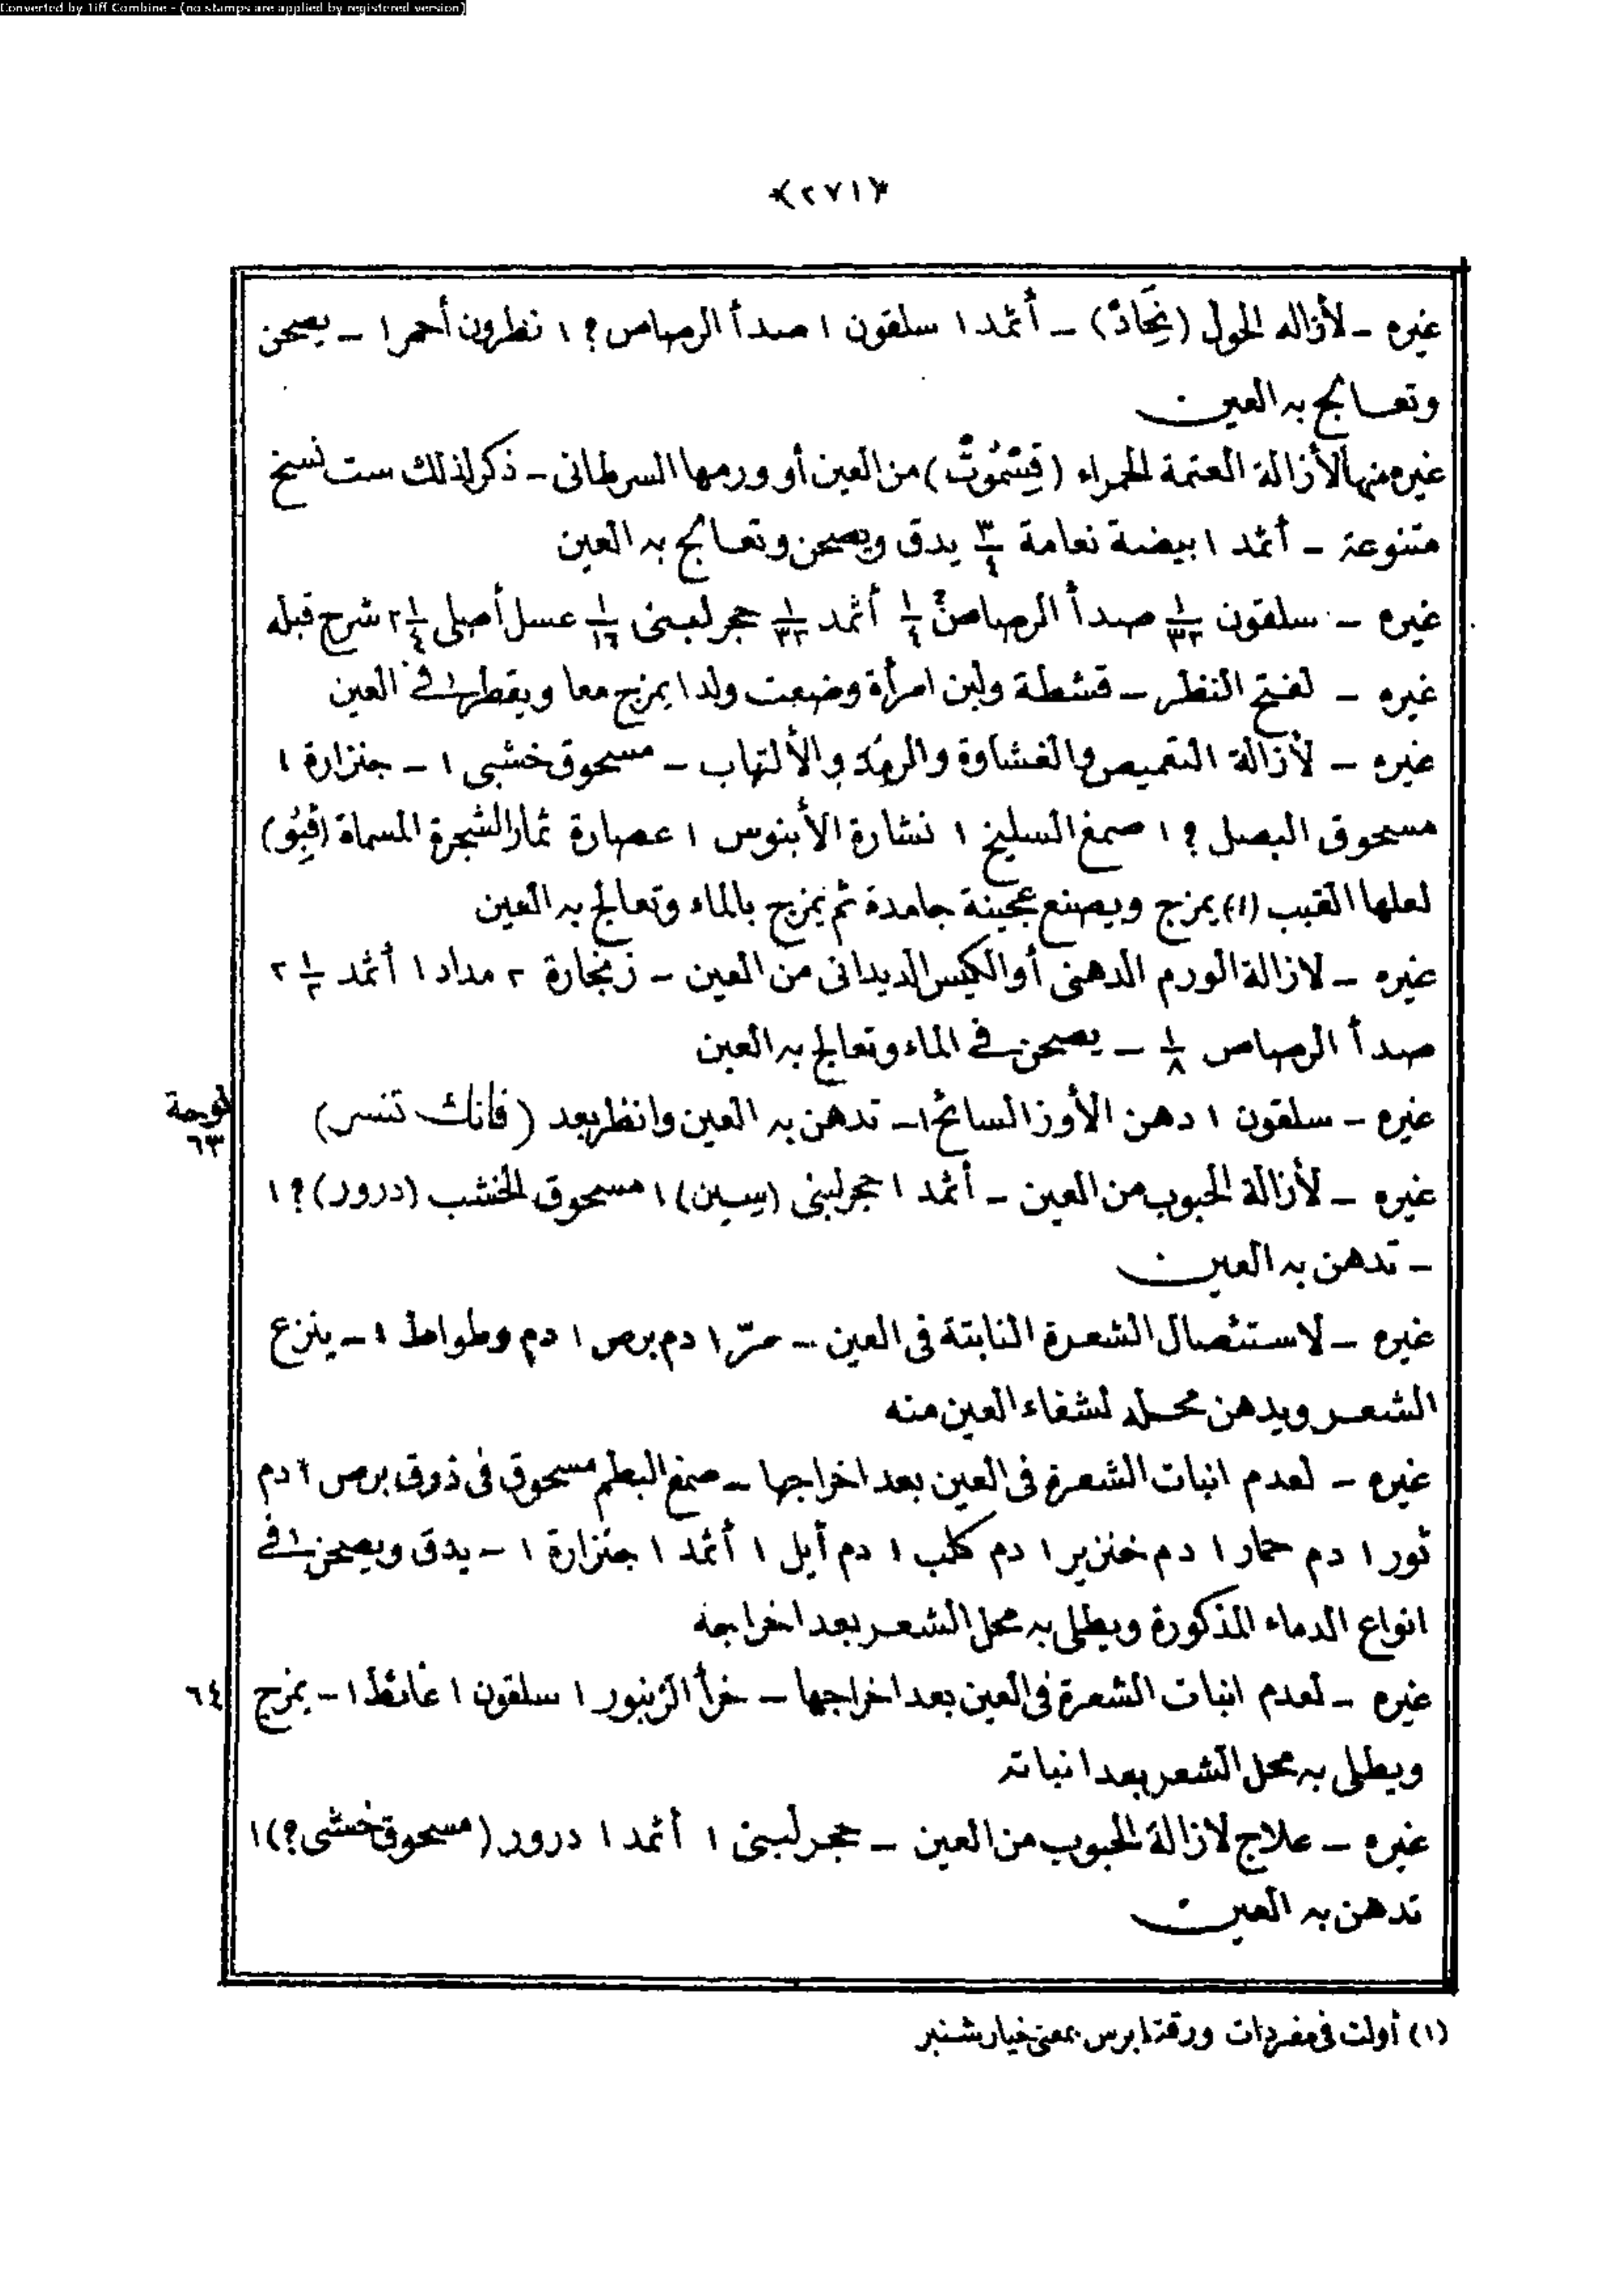 Converted by Tiff Combine - (no stamps are applied by registered version)
(٢٧١)
غيره - لأزاله الحول (نَحَادْ) - أثمد ١ سلقون ١ صدأ الرصاص ؟ ١ نطرون أحمر ١ - يصحن
وتعالج به العين
غيره منها لأزالة العتمة الحمراء (قِشْمُوتْ) من العين أو ورمها السرطانى - ذكر لذلك ست نسخ
متنوعة - أثمد ١ بيضة نعامة ٣/٤ يدق ويصحن وتعالج به العين
غيره - سلقون ١/٣٢ صدأ الرصاص؟ ١/٤ أثمد ١/٣٢ حجر لبنى ١/١٦ عسل أصلى ٢ ١/٤ شرح قبله
غيره - لفتح النظر - قشطة ولبن امرأة وضعت ولدا يمزج معا ويقطر فى العين
غيره - لأزالة التقميص والغشاوة والرمد والألتهاب - مسحوق خشبى ١ - جنزارة ١
مسحوق البصل ؟ ١ صمغ السليخ ١ نشارة الأبنوس ١ عصارة ثمار الشجرة المسماة (قِبُو)
لعلها القبب (١) يمزج ويصنع عجينة جامدة ثم يمزج بالماء وتعالج به العين
غيره - لازالة الورم الدهنى أو الكيس الديدانى من العين - زنجارة ٢ مداد ١ أثمد ١/٢ ٢
صدأ الرصاص ١/٨ - يصحن فى الماء وتعالج به العين
غيره - سلقون ١ دهن الأوز السائح ١ - تدهن به العين وانظر بعد (فانك تنسر)
لوحة
٦٣
غيره - لأزالة الحبوب من العين - أثمد ١ حجر لبنى (سِسِين) ١ مسحوق الخشب (درور) ؟ ١
- تدهن به العين
غيره - لاستئصال الشعرة النابتة فى العين - مرّ ١ دم برص ١ دم وطواط ١ - ينزع
الشعر ويدهن محله لشفاء العين منه
غيره - لعدم انبات الشعرة فى العين بعد اخراجها - صمغ البطم مسحوق فى ذوق برص ١ دم
ثور ١ دم حمار ١ دم خنزير ١ دم كلب ١ دم أيل ١ أثمد ١ جنزارة ١ - يدق ويصحن فى
انواع الدماء المذكورة ويطلى به محل الشعر بعد اخراجه
غيره - لعدم انبات الشعرة فى العين بعد اخراجها - خرأ الزنبور ١ سلقون ١ غائط ١ - يمزج
٦٤
ويطلى به محل الشعر بعد انباته
غيره - علاج لازالة الحبوب من العين - حجر لبنى ١ أثمد ١ درور (مسحوق خشبى ؟) ١
تدهن به العين
(١) أولت فى مفردات ورقة ابرس بمعنى خيار شنبر